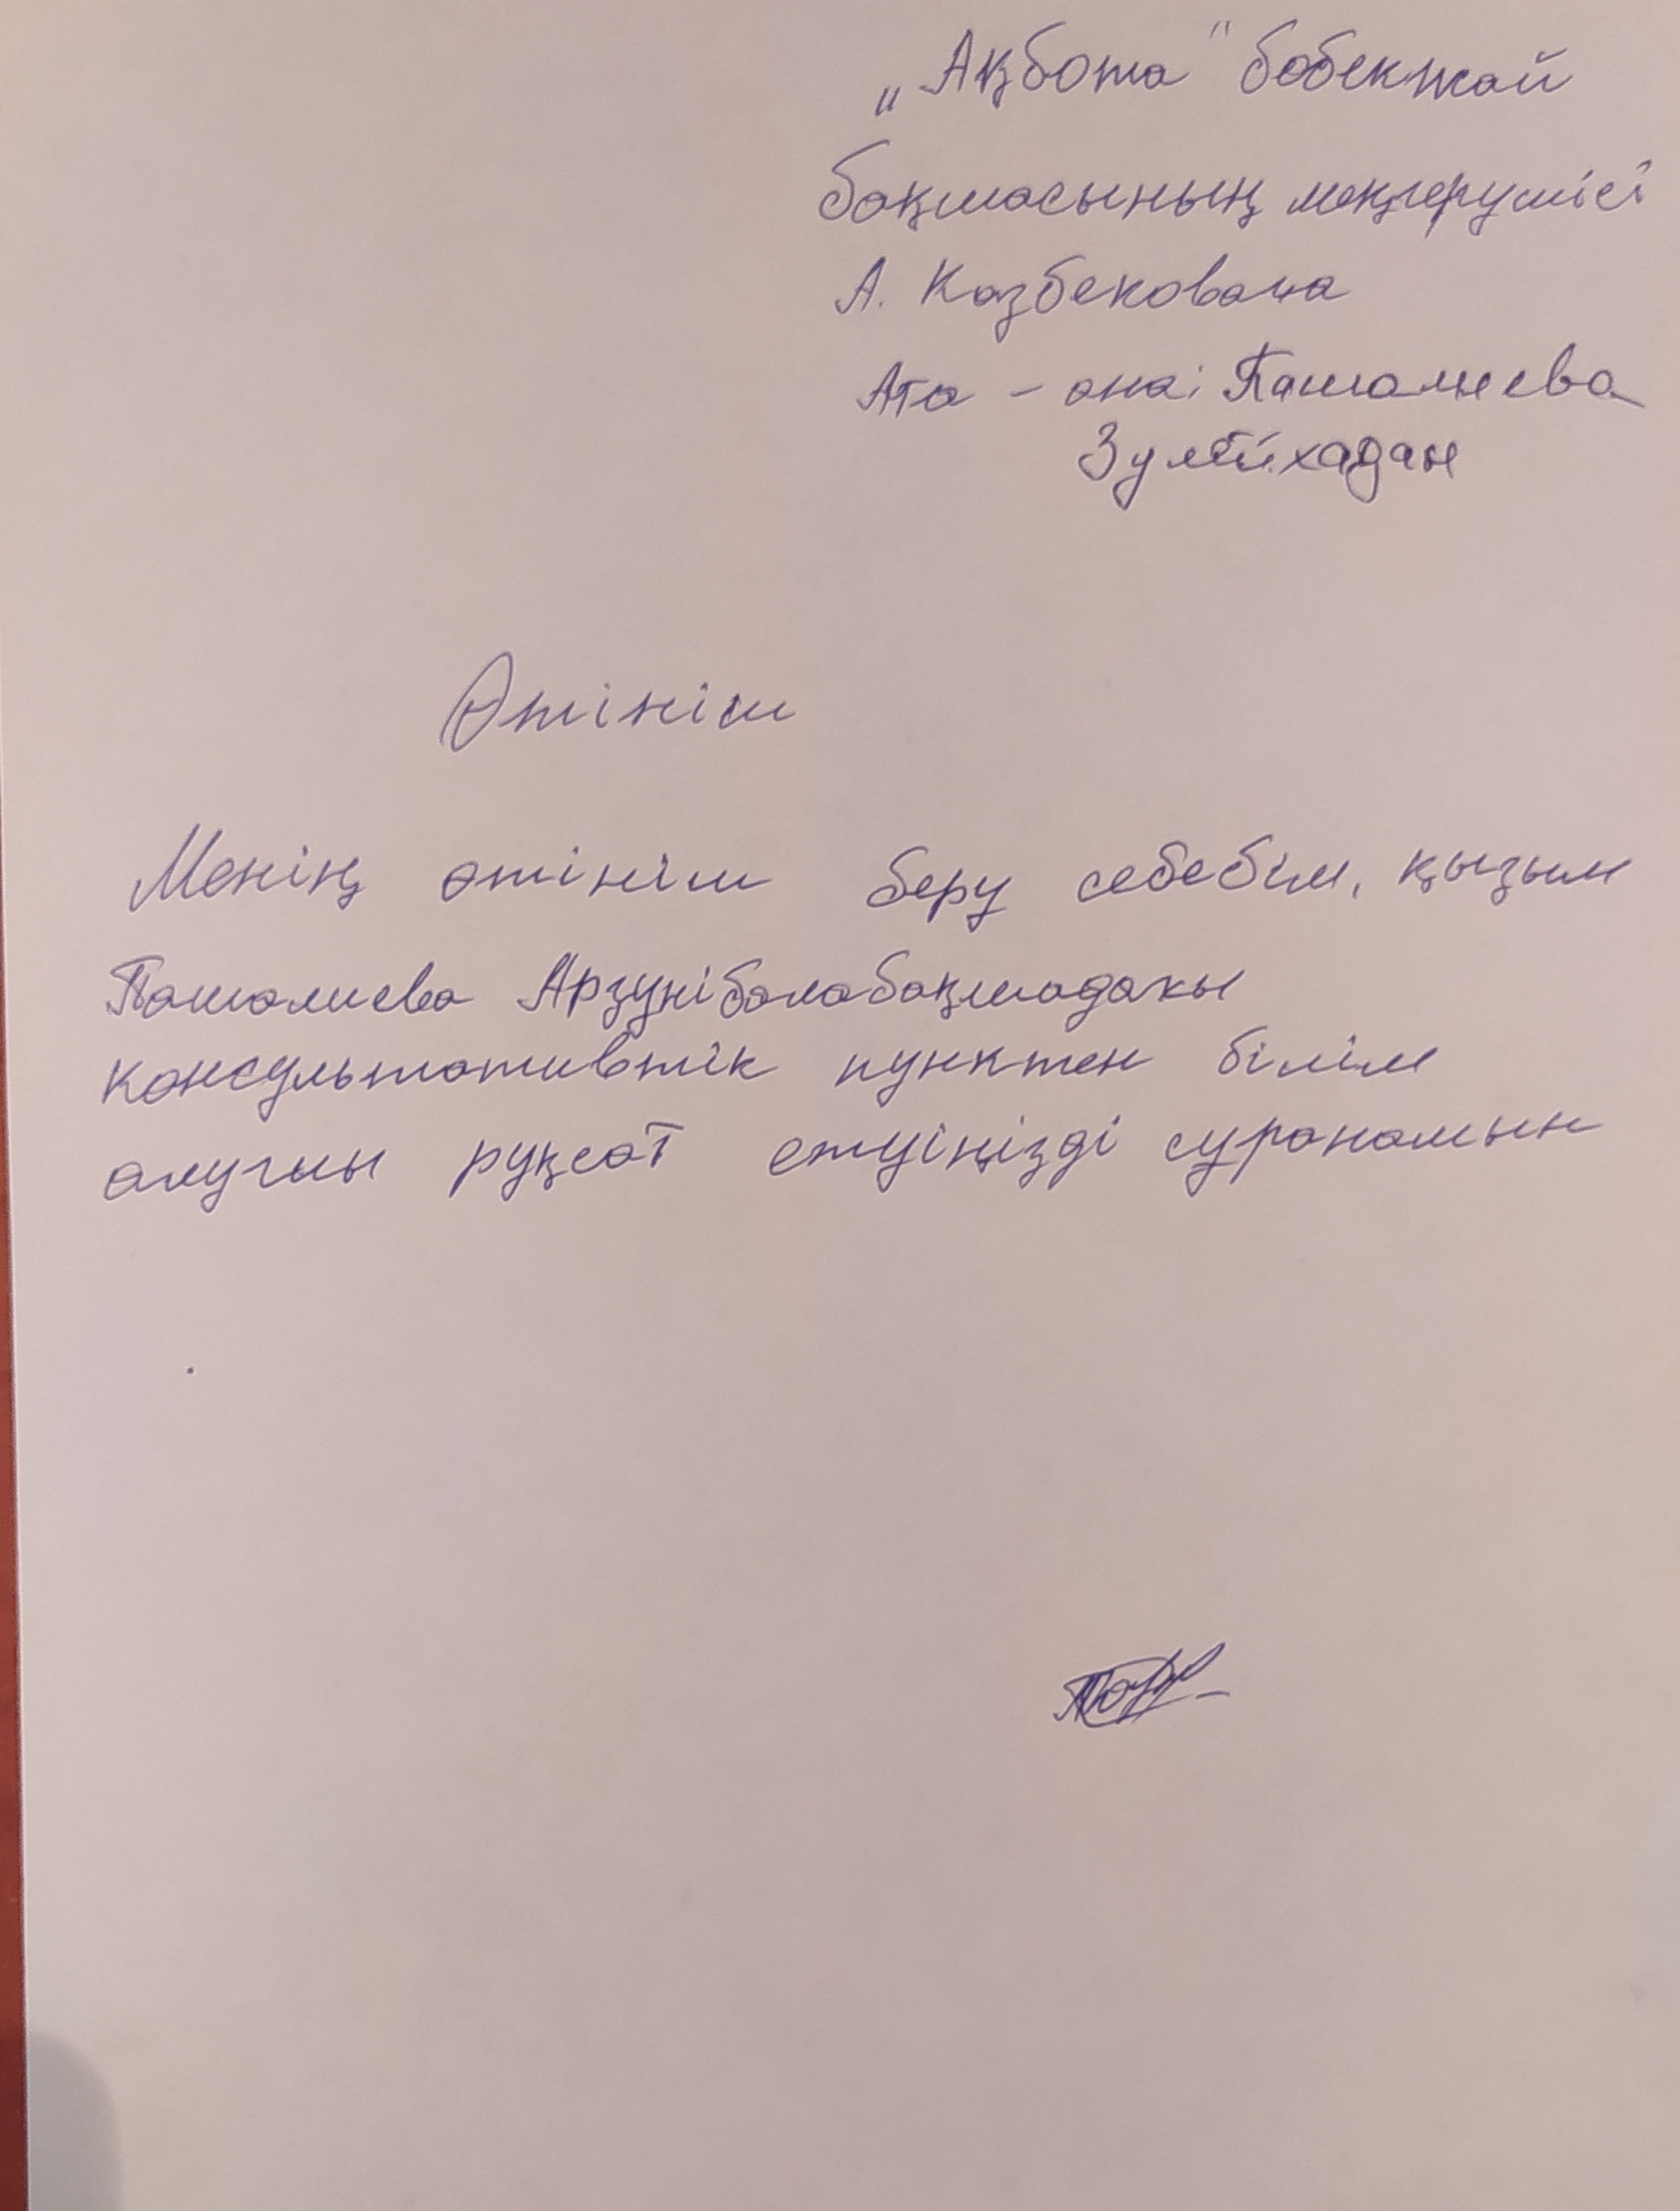 „Ақбота" бөбекжай
бақшасының меңгерушісі
А. Казбековаға
Ата - ана: Пашалиева
Зулейхадан
Өтініш
Менің өтініш беру себебім, қызым
Пашалиева Арзуні балабақшадакы
консультативтік пунктен білім
алугыы руқсат етуіңізді суранамын